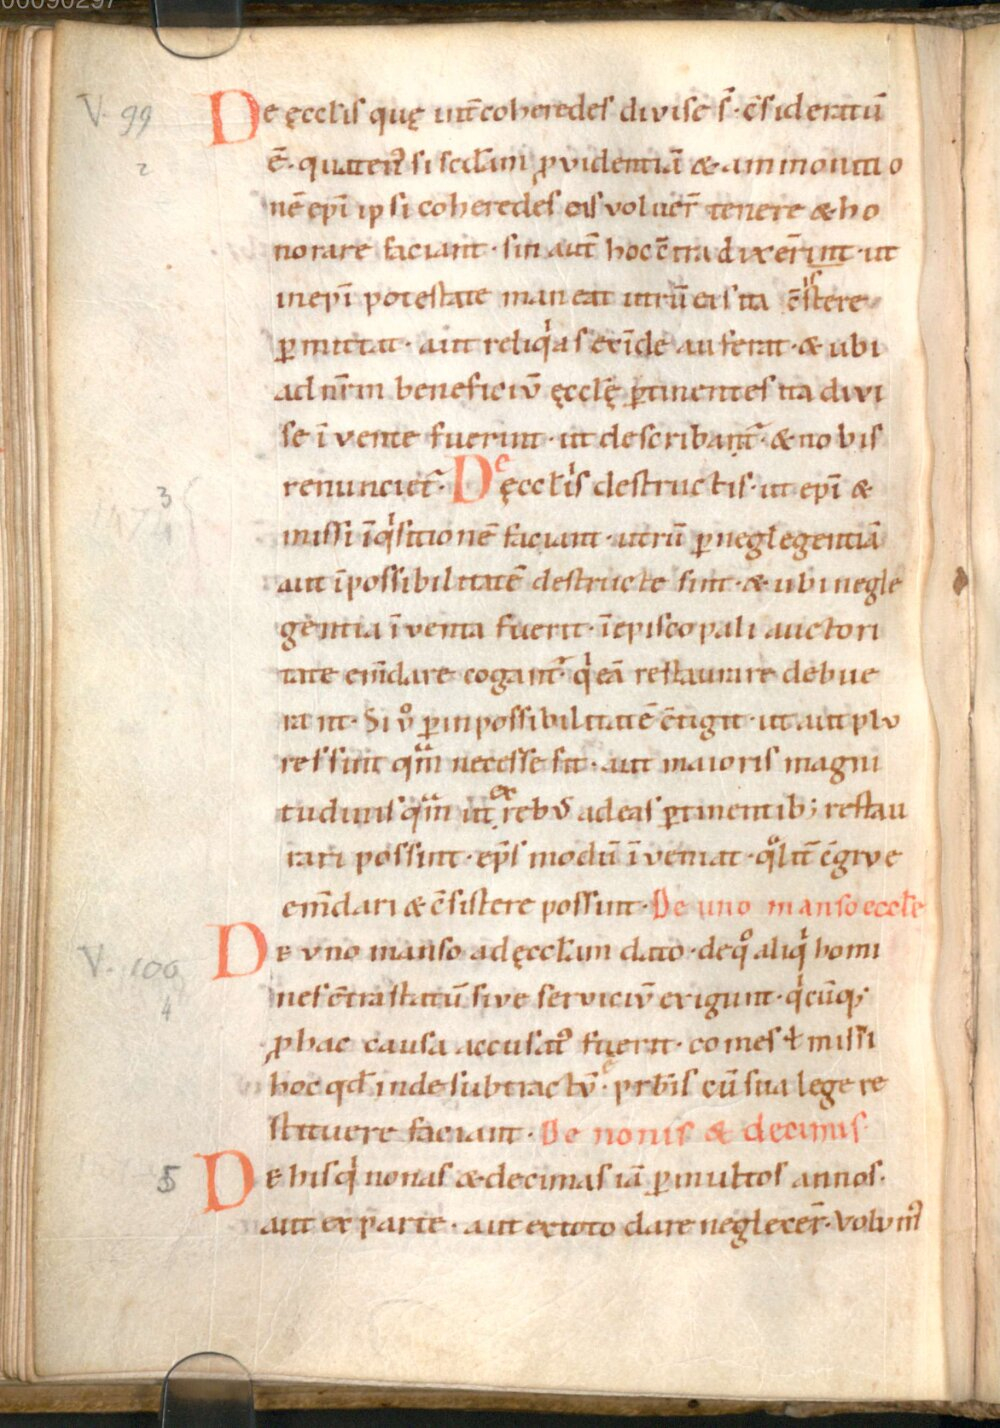 00090297
V. 99
De ęcclis quę int̄ coheredes divise s̄· c̄sideratū
2
ē· quaten᷒ si scdam ꝓvidentiā & ammonitio
nē epī ipsi coheredes eas voluer̄ tenere & ho
norare faciant· sin aut̄ hoc c̄tradixer̄int· ut
in epī potestate maneat utrū eas ita c̄sistere
ꝑmittat· aut reliq̇as exīde auferat· & ubi
ad nr̄m beneficiū ęcclę ꝑtinentes ita divi
se īvente fuerint· ut describant᷑· & nobis
renunciet᷑· De ęcclis destructis· ut epī &
3
missi īq̇sitionē faciant· utrū ꝑ neglegentiā
aut īpossibilitatē destructe sint· & ubi negle
gentia īventa fuerit· ī episcopali auctori
tate em̄dare cogant᷑· q̇ eā restaurare debue
rant· Si v̊ ꝑ inpossibilitatē c̄tigit· ut aut plu
res sint qm̄ necesse sit· aut maioris magni
tudinis qm̄ ut ex rebus ad eas ꝑtinentib; restau
rari possint· ep̄s modū īveniat· qͦlit̄ c̄grue
em̄dari & c̄sistere possint· De uno manso eccłe
De uno manso ad ęcclam dato· de qͦ aliq̇ homi
V. 100
nes c̄tra statutū sive serviciū exigunt· q̇cūq;
4
ꝓ hac causa accusat᷒ fuerit· comes ł missi
hoc qđ inde subtractū ē· prb̄is cū sua lege re
stituere faciant· De nonis & decimis·
De his q̇ nonas & decimas iā ꝑ multos annos·
5
aut ex parte· aut ex toto dare neglexer̄· volum᷒